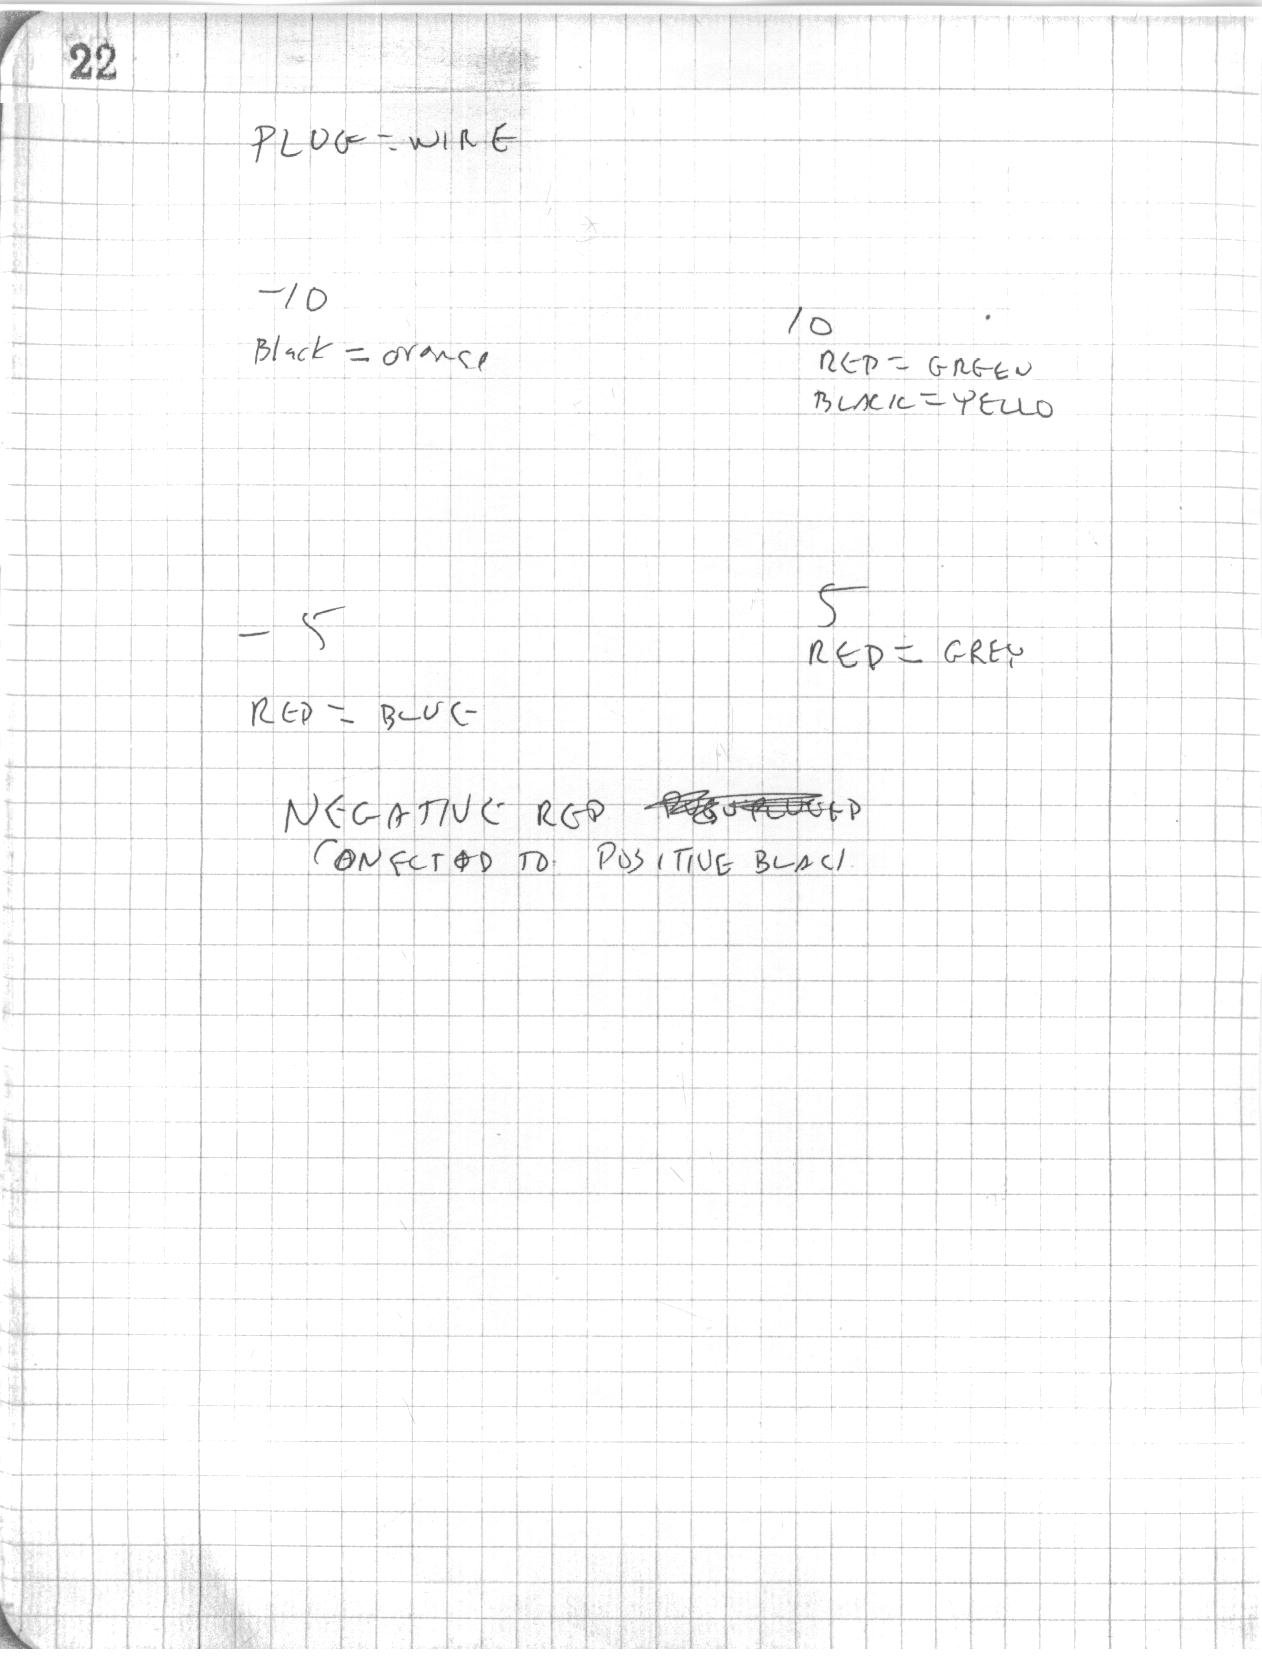 22
PLUG = WIRE
-10
Black = orange
10
RED = GREEN
BLACK = YELLO
- 5
RED = BLUE
5
RED = GREY
NEGATIVE RED
CONECTED TO POSITIVE BLACK